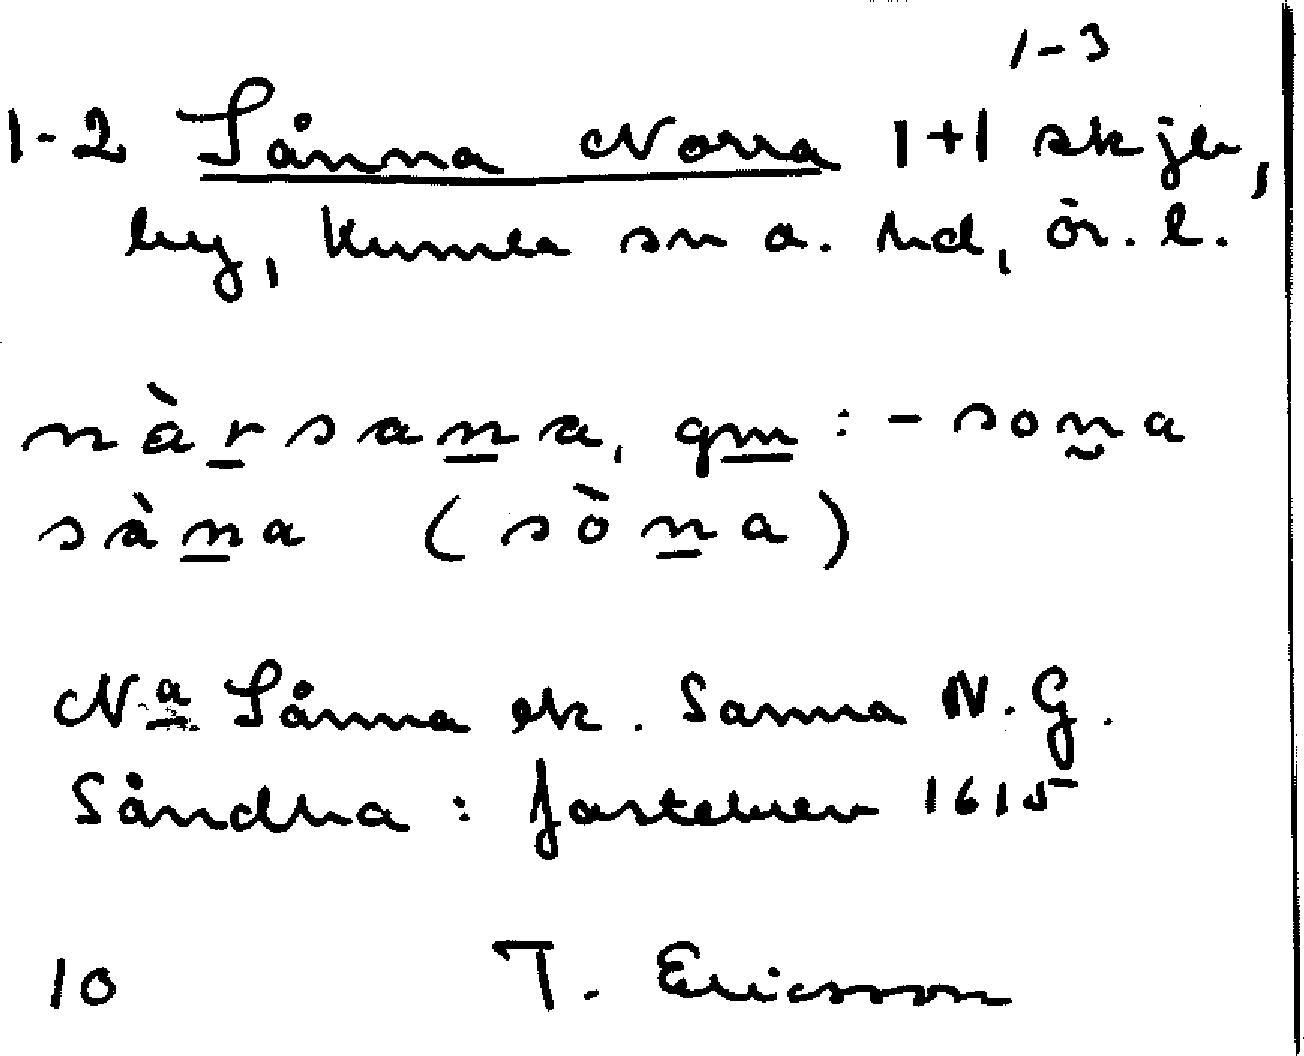 1-3
1-2 Sånna Norra 1+1 skjb,
by, Kumla sn o. hd, ör. l.
nàrsana, gm : -sona
sàna (sòna)
Na Sånna ek. Sanna N. G.
Såndha : fastebrev 1615
10 T. Ericsson